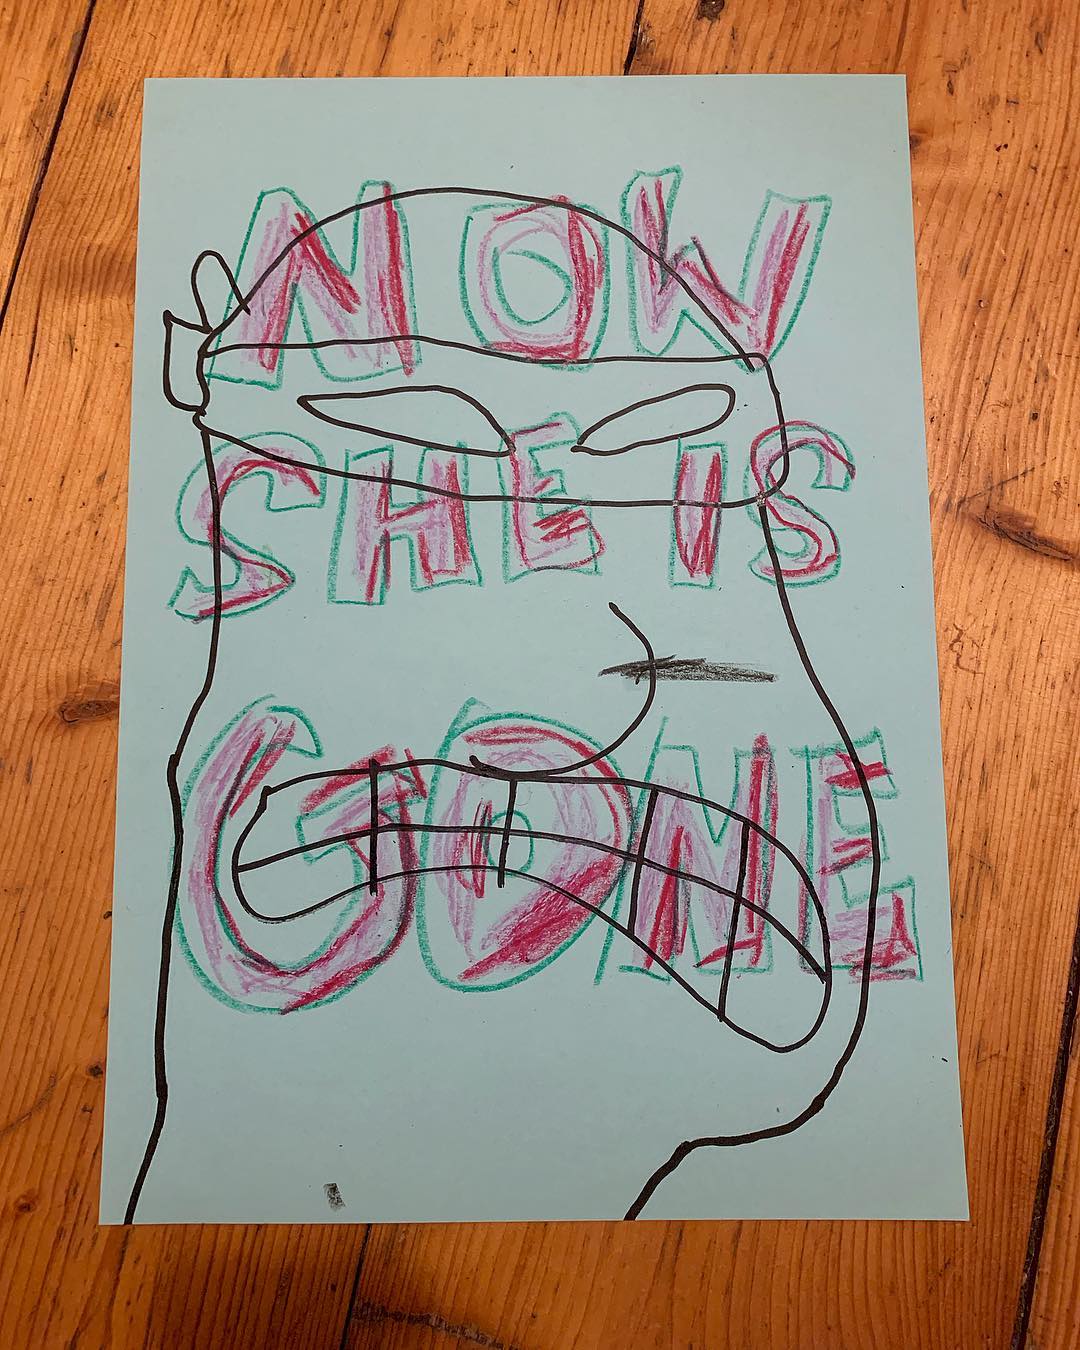 NOW
SHE IS
GONE